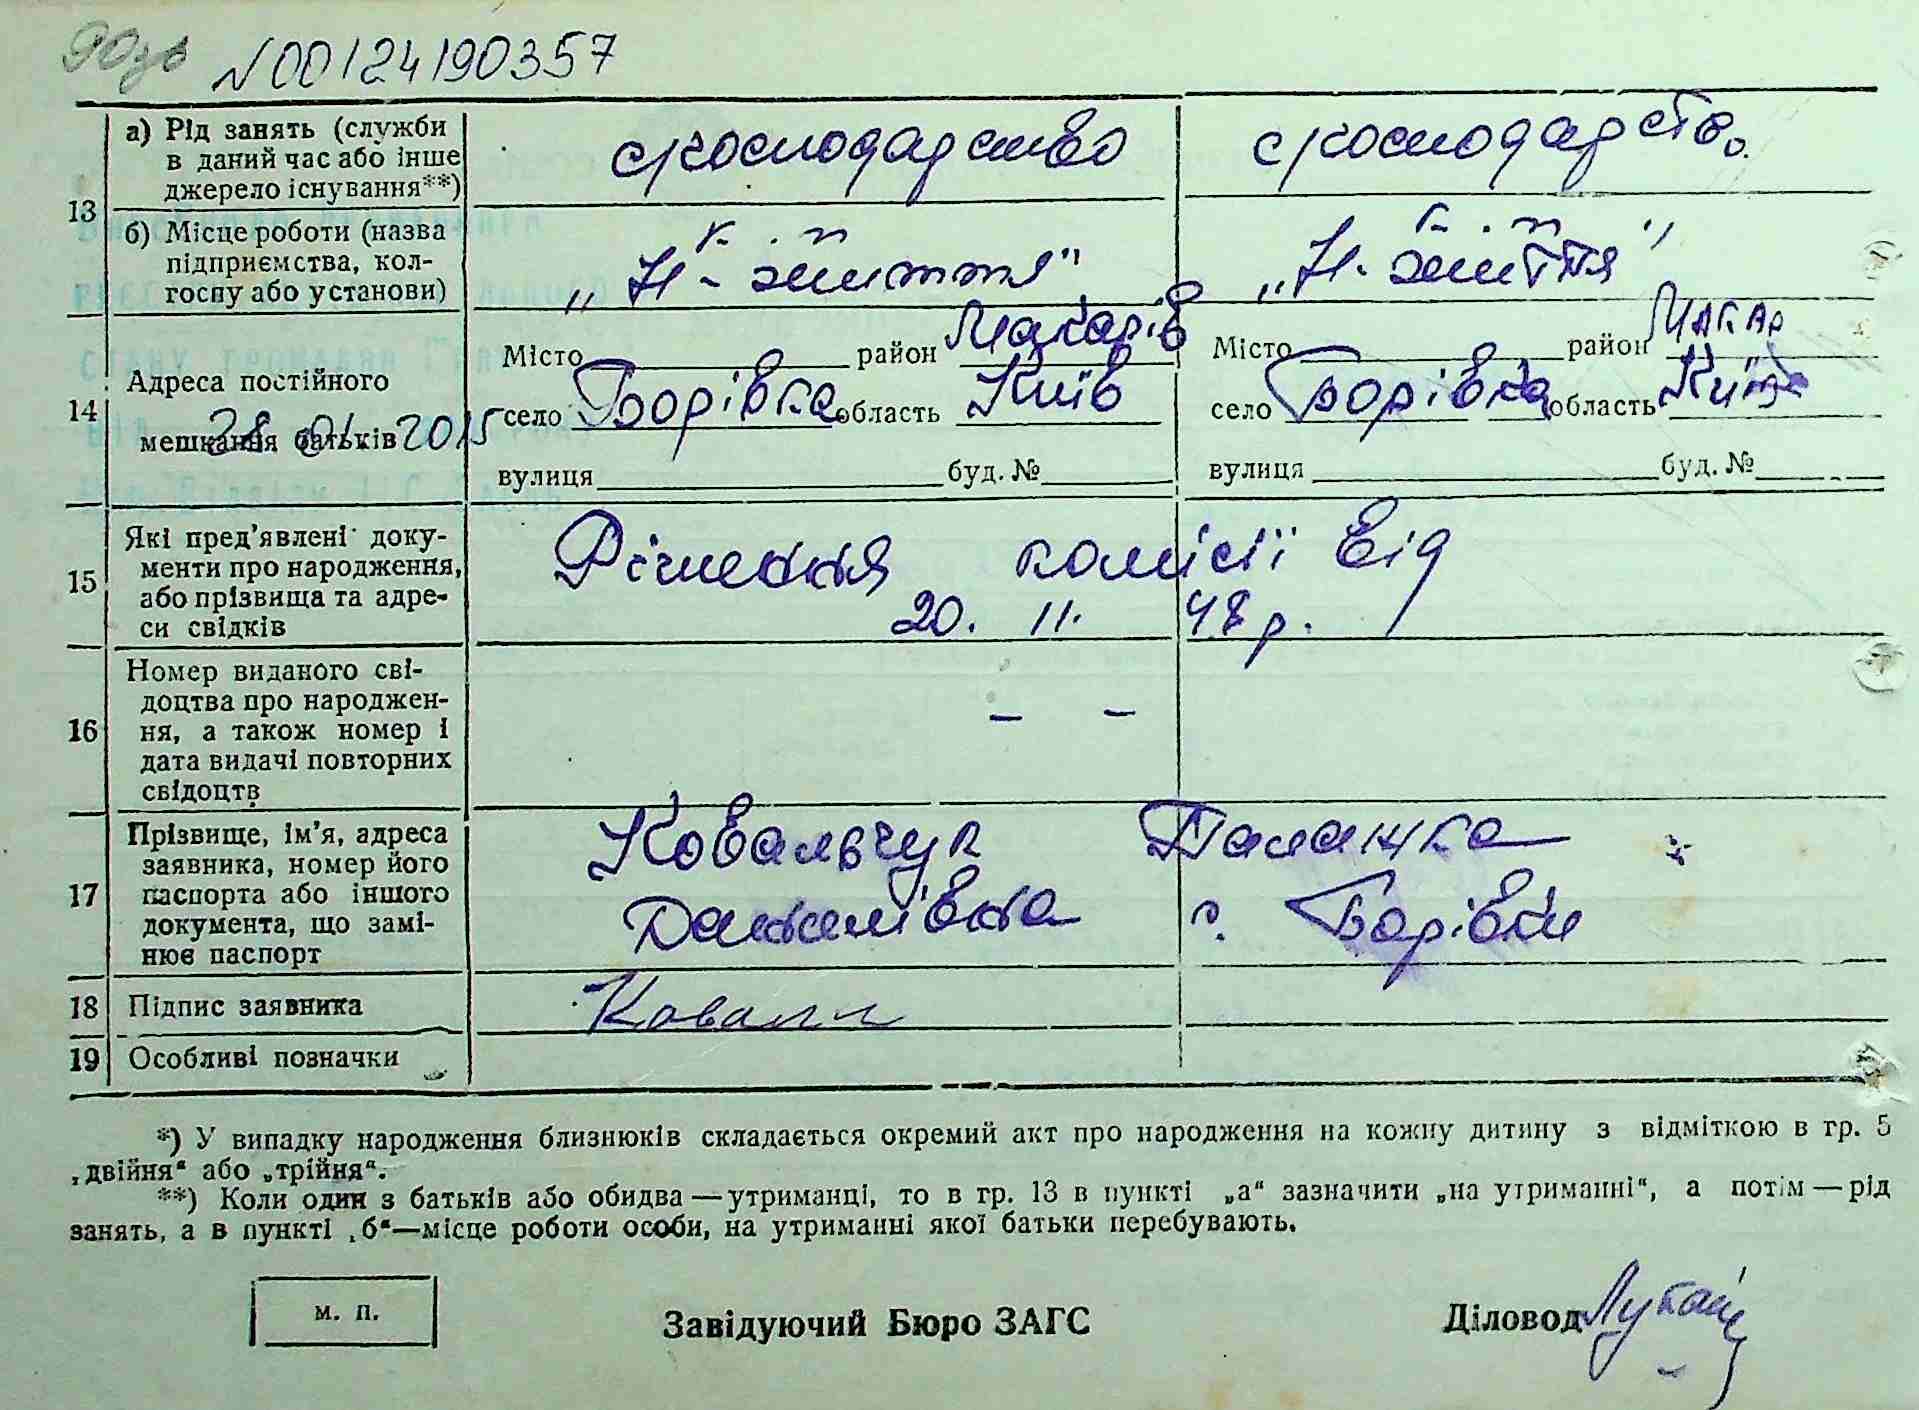 №00124190357
13 а) Рід занять (служби в даний час або інше джерело існування**)
с/господарство с/господарство
б) Місце роботи (назва підприємства, колгоспу або установи)
к-п к-п
„Н-життя" „Н-життя"
14 Адреса постійного мешкання батьків
28 01 2015
Місто район Макарів Місто район Макар
село Борівка область Київ село Борівка область Київ
вулиця буд. № вулиця буд. №
15 Які пред'явлені документи про народження, або прізвища та адреси свідків
Рішення комісії від
20. 11. 48 р.
16 Номер виданого свідоцтва про народження, а також номер і дата видачі повторних свідоцтв
– –
17 Прізвище, ім'я, адреса заявника, номер його паспорта або іншого документа, що замінює паспорт
Ковальчук Палажка
Данилівна с. Борівки
18 Підпис заявника
19 Особливі позначки
*) У випадку народження близнюків складається окремий акт про народження на кожну дитину з відміткою в гр. 5
„двійня" або „трійня".
**) Коли один з батьків або обидва — утриманці, то в гр. 13 в пункті „а" зазначити „на утриманні", а потім — рід
занять, а в пункті „б"—місце роботи особи, на утриманні якої батьки перебувають.
м. п. Завідуючий Бюро ЗАГС Діловод